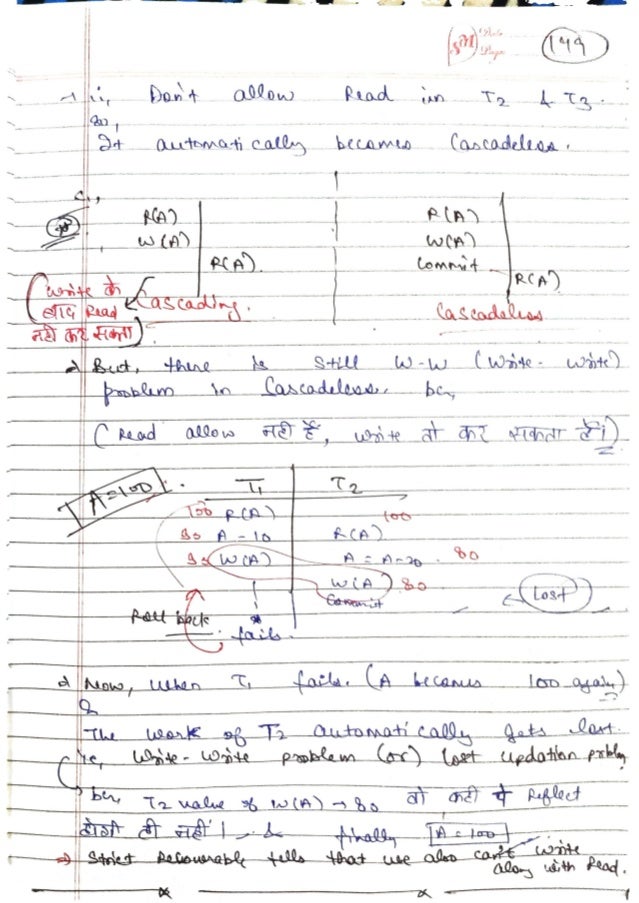 SM Date
Page
149
→ ii, Don't allow Read in T2 & T3.
so,
It automatically becomes Cascadeless.
R(A)
W(A)
R(A).
Cascading.
(write के
बाद Read
नहीं कर सकता)
R(A)
W(A)
Commit
R(A)
Cascadeless
→ But, there is still W-W (Write-Write)
problem in Cascadeless, bcz,
(Read allow नहीं है, write तो कर सकता है।)
A=100
T1 T2
100 R(A) 100
90 A - 10 R(A)
90 W(A) A = A-20 . 80
W(A) 80
Commit
← Lost
Roll back
fails.
→ Now, when T1 fails. (A becomes 100 again)
&
The work of T2 automatically gets lost.
ie, Write-Write problem (or) lost updation problem
bcz, T2 value of W(A) → 80 तो कहीं पे Reflect
होगी ही नहीं। & finally A = 100
⇒ Strict Recoverable tells that we also can't write
along with Read.